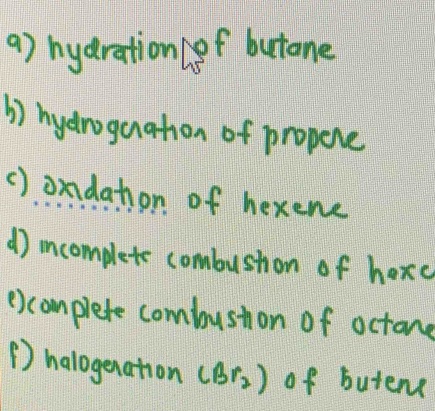 a) hydration of butane
b) hydrogenation of propene
c) oxidation of hexene
d) incomplete combustion of hexe
e) complete combustion of octane
f) halogenation (Br₂) of butene